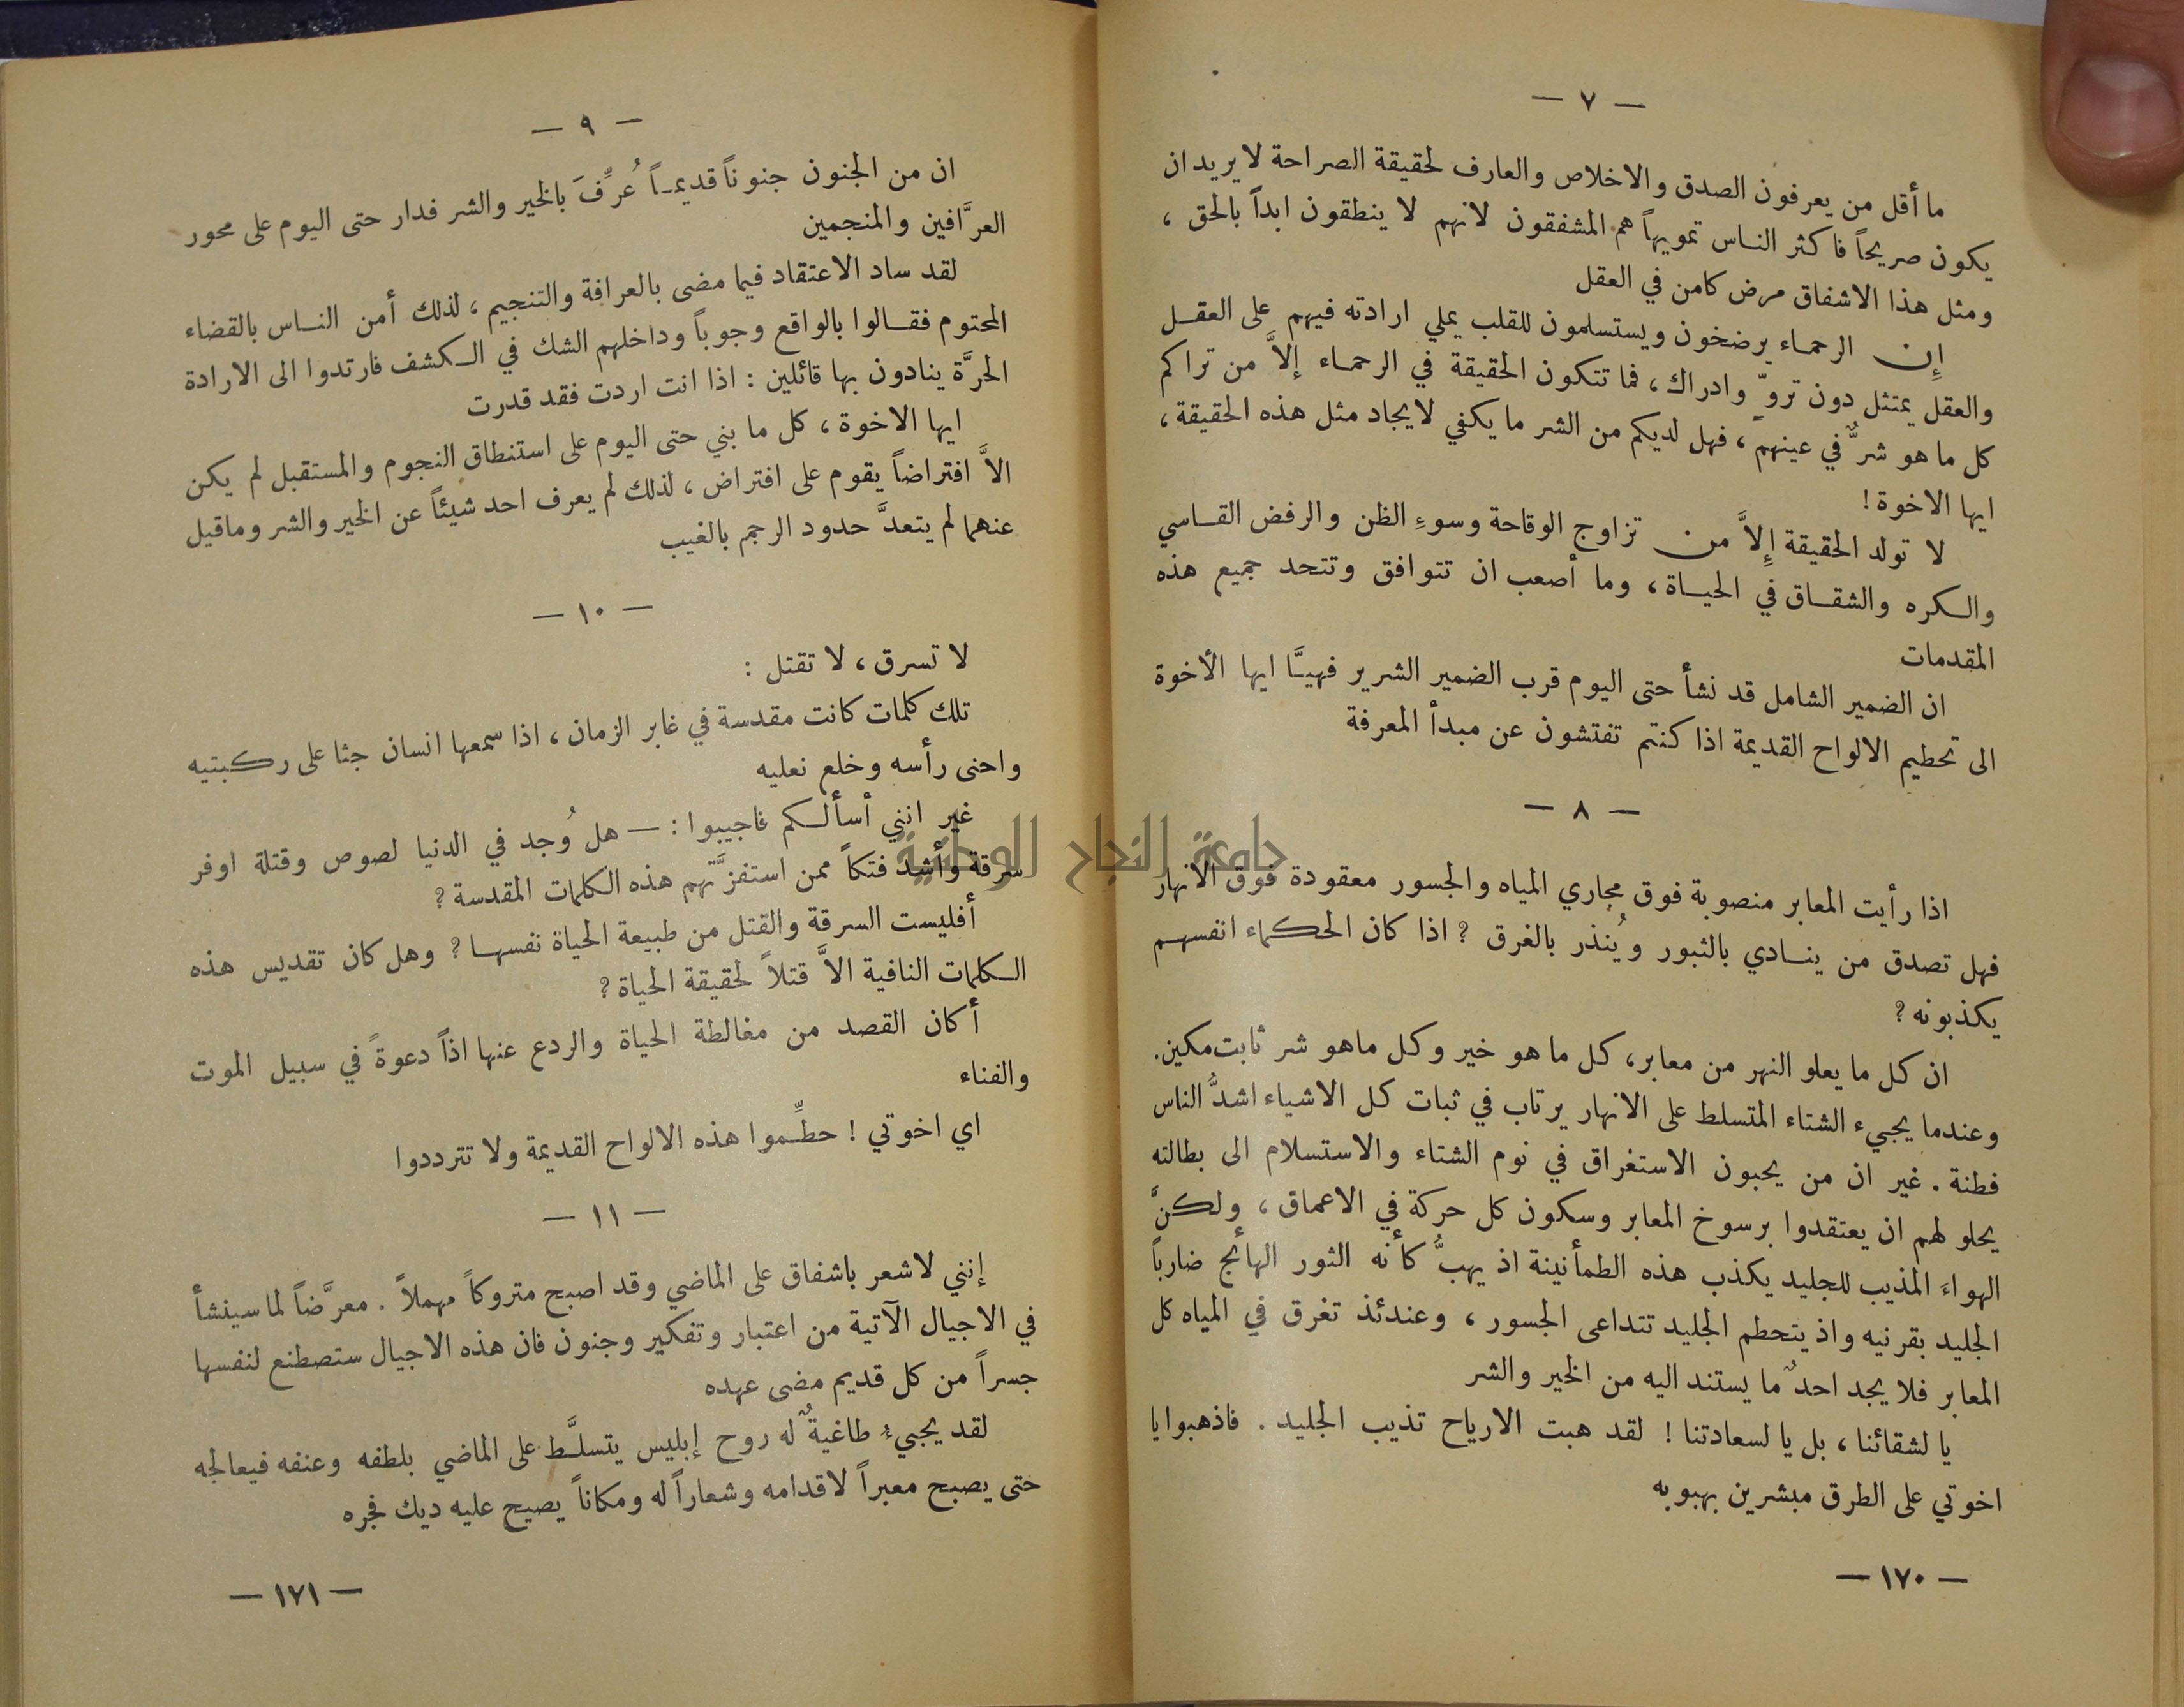 — ٧ —
ما أقل من يعرفون الصدق والاخلاص والعارف لحقيقة الصراحة لا يريد ان
يكون صريحاً فاكثر النـاس تمويهاً هم المشفقون لانهم لا ينطقون ابداً بالحق ،
ومثل هذا الاشفاق مرض كامن في العقل
إِن الرحمـاء يرضخون ويستسلمون للقلب يملي ارادته فيهم على العقـل
والعقل يمتثل دون تروٍّ وادراك ، فما تتكون الحقيقة في الرحمـاء إلاَّ من تراكم
كل ما هو شرٌّ في عينهم ، فهل لديكم من الشر ما يكفي لايجاد مثل هذه الحقيقة ،
ايها الاخوة !
لا تولد الحقيقة إِلاَّ من تزاوج الوقاحة وسوءِ الظن والرفض القـاسي
والـكره والشقـاق في الحيـاة ، وما أصعب ان تتوافق وتتحد جميع هذه
المقدمات
ان الضمير الشامل قد نشأ حتى اليوم قرب الضمير الشرير فهيـَّا ايها الأخوة
الى تحطيم الالواح القديمة اذا كنتم تفتشون عن مبدأ المعرفة
— ٨ —
اذا رأيت المعابر منصوبة فوق مجاري المياه والجسور معقودة فوق الانهار
فهل تصدق من ينـادي بالثبور ويُنذر بالغرق ? اذا كان الحكماء انفسهـم
يكذبونه ?
ان كل ما يعلو النهر من معابر، كل ما هو خير وكل ماهو شر ثابت مكين.
وعندما يجيء الشتاء المتسلط على الانهار يرتاب في ثبات كل الاشياء اشدُّ الناس
فطنة . غير ان من يحبون الاستغراق في نوم الشتاء والاستسلام الى بطالته
يحلو لهم ان يعتقدوا برسوخ المعابر وسكون كل حركة في الاعماق ، ولكنَّ
الهواءَ المذيب للجليد يكذب هذه الطمأنينة اذ يهبُّ كأنه الثور الهائج ضارباً
الجليد بقرنيه واذ يتحطم الجليد تتداعى الجسور ، وعندئذ تغرق في المياه كل
المعابر فلا يجد احدٌ ما يستند اليه من الخير والشر
يا لشقائنا ، بل يا لسعادتنا ! لقد هبت الارياح تذيب الجليد . فاذهبوا يا
اخوتي على الطرق مبشرين بهبوبه
— ١٧٠ —
— ٩ —
ان من الجنون جنوناً قديمـاً عُرِّفَ بالخير والشر فدار حتى اليوم على محور
العرَّافين والمنجمين
لقد ساد الاعتقاد فيما مضى بالعرافة والتنجيم ، لذلك أمن النـاس بالقضاء
المحتوم فقـالوا بالواقع وجوباً وداخلهم الشك في الـكشف فارتدوا الى الارادة
الحرَّة ينادون بها قائلين : اذا انت اردت فقد قدرت
ايها الاخوة ، كل ما بني حتى اليوم على استنطاق النجوم والمستقبل لم يكن
الاَّ افتراضاً يقوم على افتراض ، لذلك لم يعرف احد شيئاً عن الخير والشر وماقيل
عنهما لم يتعدَّ حدود الرجم بالغيب
— ١٠ —
لا تسرق ، لا تقتل :
تلك كلمات كانت مقدسة في غابر الزمان ، اذا سمعها انسان جثا على ركبتيه
واحنى رأسه وخلع نعليه
غير انني أسألـكم فاجيبوا : — هل وُجد في الدنيا لصوص وقتلة اوفر
سرقة وأشد فتكاً ممن استفزَّتهم هذه الكلمات المقدسة ?
أفليست السرقة والقتل من طبيعة الحياة نفسهـا ? وهل كان تقديس هذه
الـكلمات النافية الاَّ قتلاً لحقيقة الحياة ?
أكان القصد من مغالطة الحياة والردع عنها اذاً دعوةً في سبيل الموت
والفناء
اي اخوتي ! حطِّـموا هذه الالواح القديمة ولا تترددوا
— ١١ —
إنني لاشعر باشفاق على الماضي وقد اصبح متروكاً مهملاً . معرَّضاً لما سينشأ
في الاجيال الآتية من اعتبار وتفكير وجنون فان هذه الاجيال ستصطنع لنفسها
جسراً من كل قديم مضى عهده
لقد يجيءُ طاغيةٌ له روح إبليس يتسلَّط على الماضي بلطفه وعنفه فيعالجه
حتى يصبح معبراً لاقدامه وشعاراً له ومكاناً يصيح عليه ديك فجره
— ١٧١ —
جامعة النجاح الوطنية